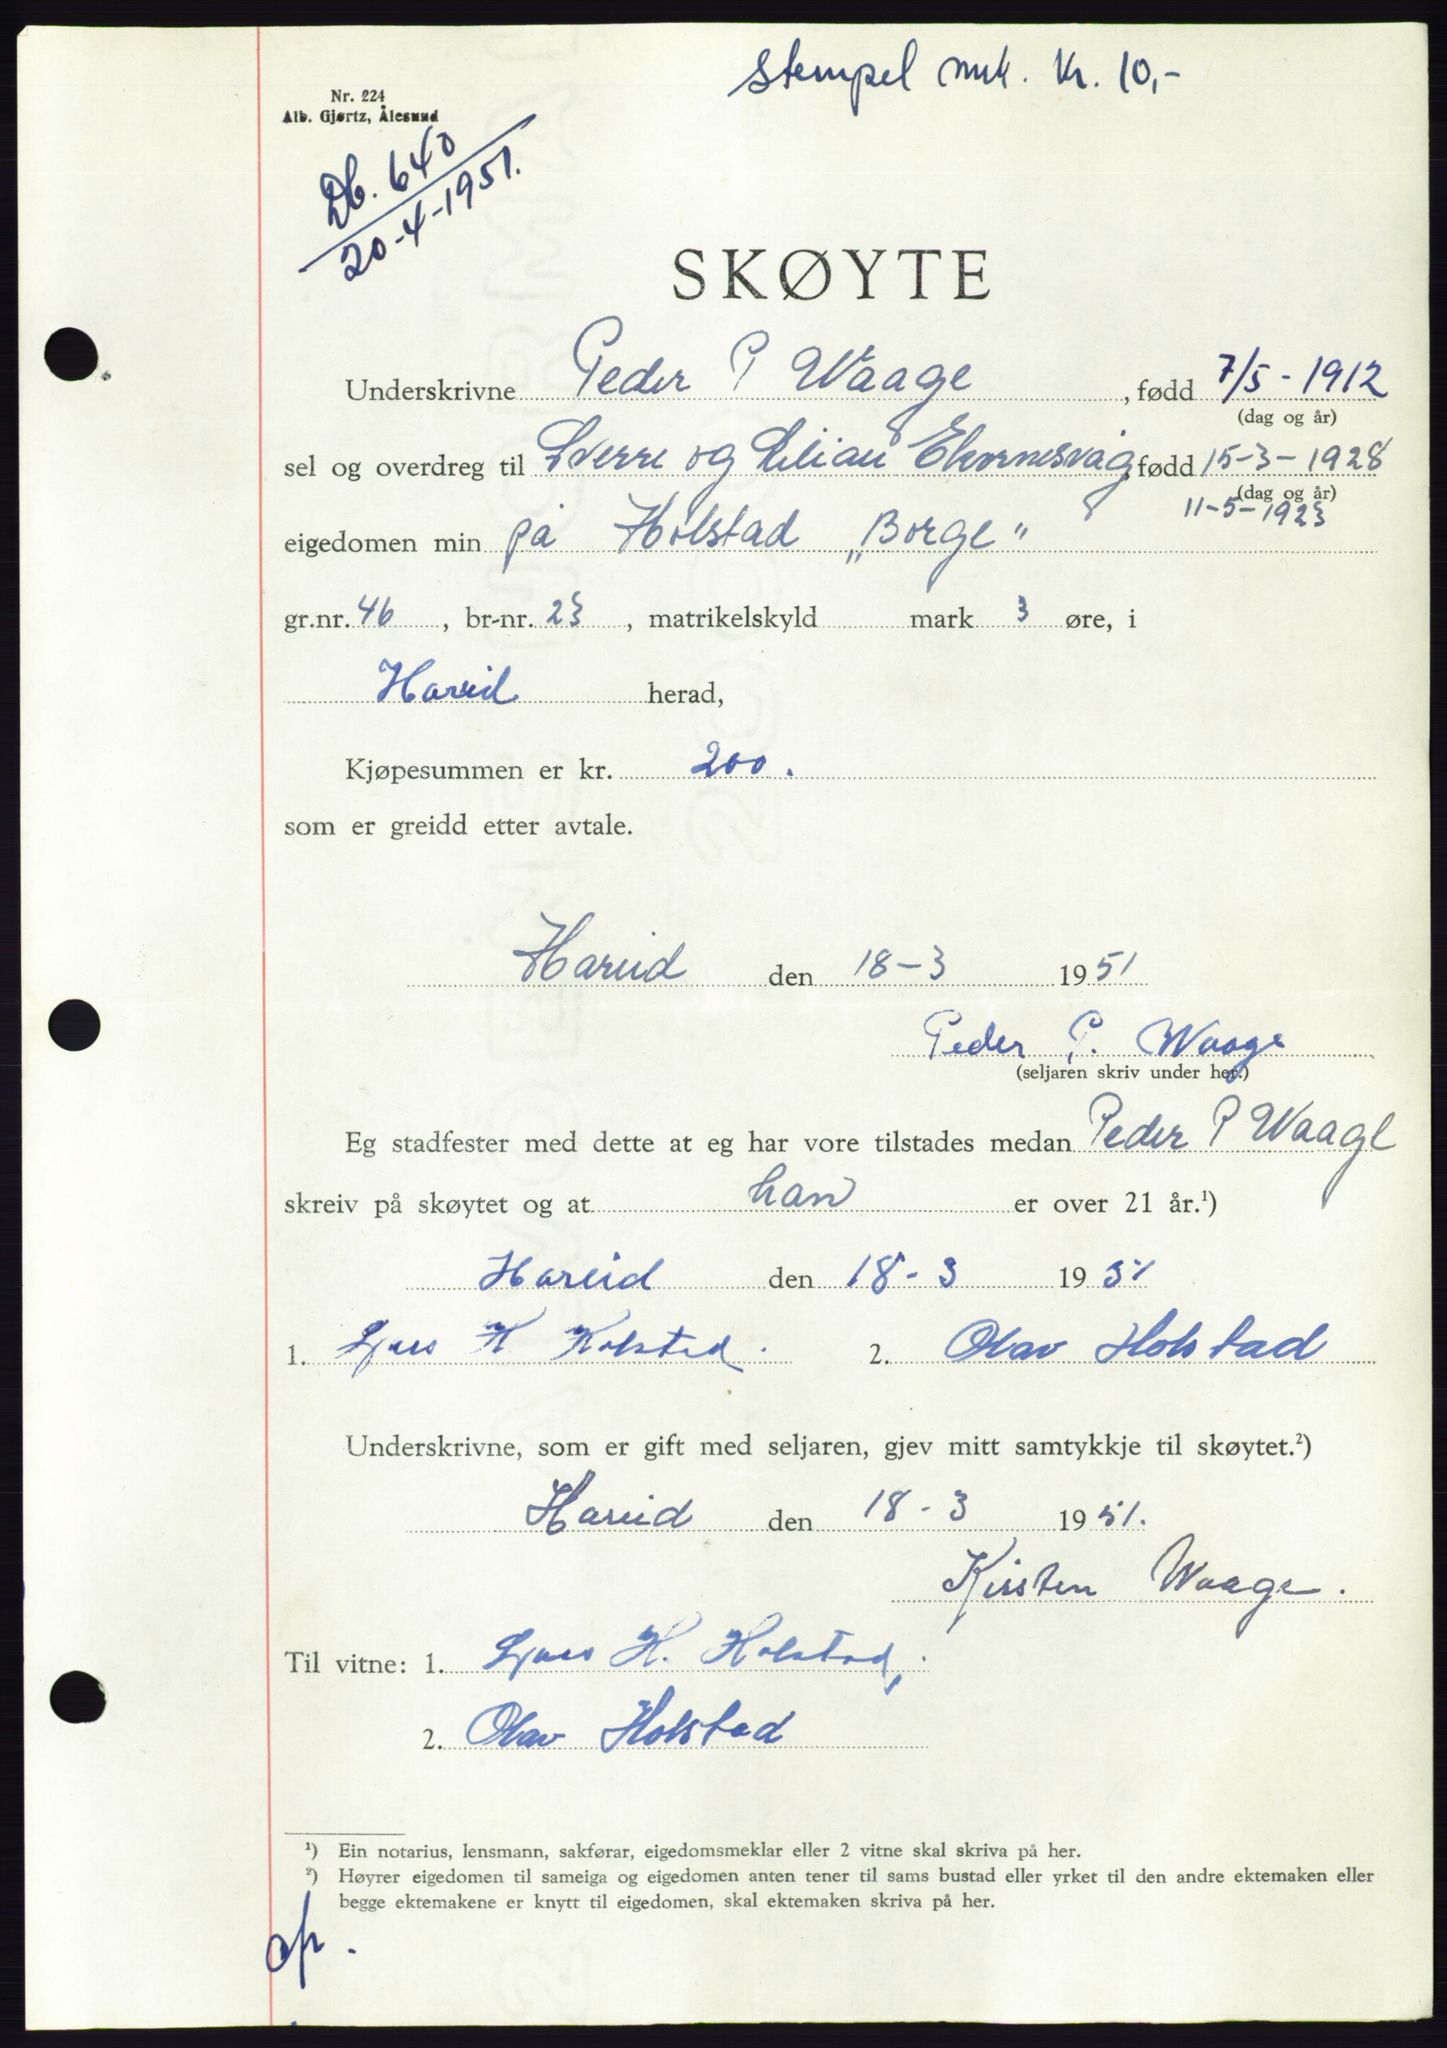 stempel mrk. Kr. 10,-
Nr. 224
Alb. Gjørtz, Ålesund
Db. 640
20-4-1951.
SKØYTE
Underskrivne Peder P Waage, fødd 7/5-1912
(dag og år)
sel og overdreg til Sverre og Lilian Ekornesvåg fødd 15-3-1928
(dag og år)
11-5-1923
eigedomen min på Holstad „Borge"
gr.nr. 46, br-nr. 23, matrikelskyld mark 3 øre, i
Hareid herad,
Kjøpesummen er kr. 200.
som er greidd etter avtale.
Hareid den 18-3 1951
Peder P. Waage
(seljaren skriv under her.)
Eg stadfester med dette at eg har vore tilstades medan Peder P Waage
skreiv på skøytet og at han er over 21 år.¹)
Hareid den 18-3 1951
1. H Holstad. 2. Olav Holstad
Underskrivne, som er gift med seljaren, gjev mitt samtykkje til skøytet.²)
Hareid den 18-3 1951.
Kirsten Waage.
Til vitne: 1. H. Holstad,
2. Olav Holstad
¹) Ein notarius, lensmann, sakførar, eigedomsmeklar eller 2 vitne skal skriva på her.
²) Høyrer eigedomen til sameiga og eigedomen anten tener til sams bustad eller yrket til den andre ektemaken eller
begge ektemakene er knytt til eigedomen, skal ektemaken skriva på her.